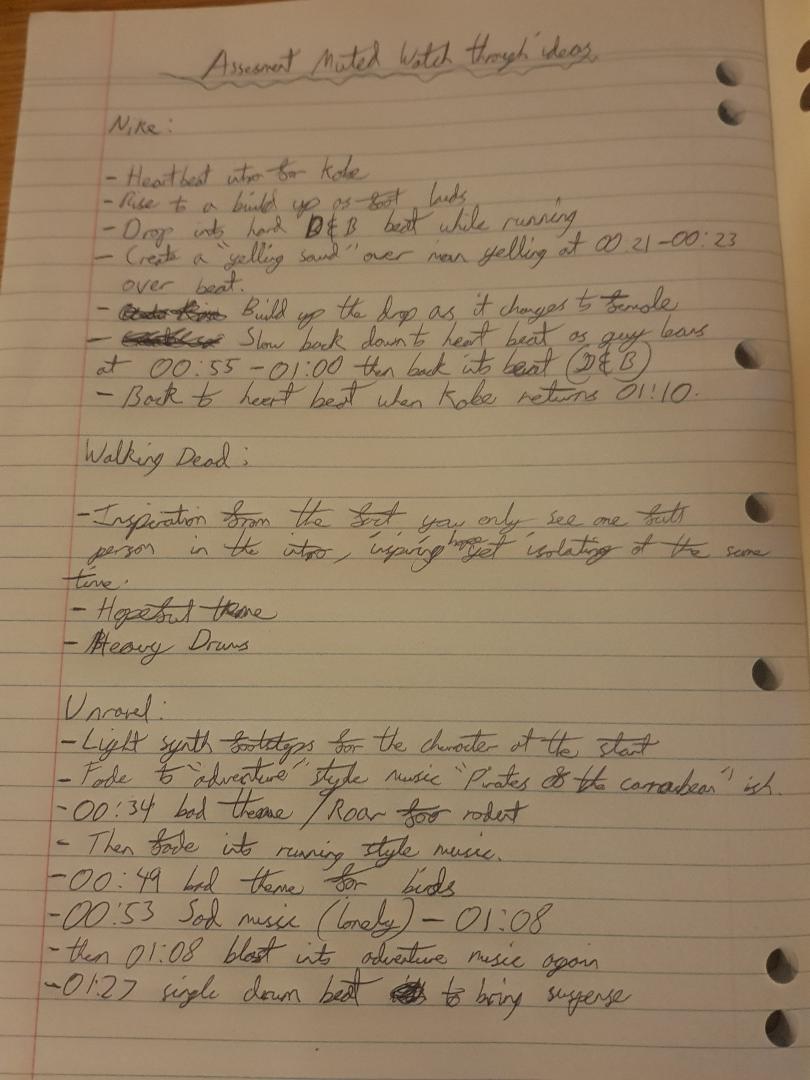 Assesment Muted Watch through ideas
Nike:
- Heartbeat intro for Kobe
- Rise to a build up as foot lands
- Drop into hard D&B beat while running
- Create a "yelling sound" over man yelling at 00:21-00:23
over beat.
- Build up the drop as it changes to female
- Slow back down to heart beat as guy leans
at 00:55 - 01:00 then back into beat (D&B)
- Back to heart beat when Kobe returns 01:10.
Walking Dead:
- Inspiration from the fact you only see one full
person in the intro, inspiring hope yet isolating at the same
time.
- Hopeful theme
- Heavy Drums
Unravel:
- Light synth footsteps for the character at the start
- Fade to "adventure" style music "Pirates of the carrabean" ish.
- 00:34 bad theme / Roar for rodent
- Then fade into running style music.
- 00:49 bad theme for birds
- 00:53 Sad music (lonely) - 01:08
- then 01:08 blast into adventure music again
- 01:27 single drum beat to bring suspense